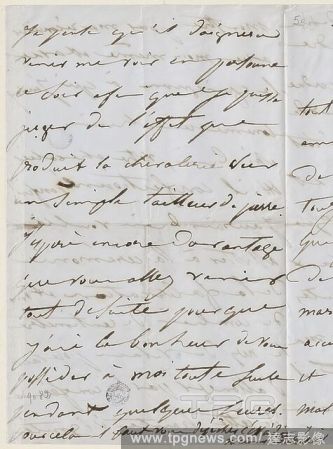 J'espère qu'il daignera
venir me voir en personne
ce soir afin que je puisse
juger de l'effet que
produit la chevalerie sur
un simple tailleur de pierre
J'espère encore davantage
que vous allez venir
tout de suite pour que
j'aie le bonheur de vous
posséder à moi toute seule
pendant quelques heures.
pour cela il faut
tout
de
tout
que
de
mar
et
TPG
www.tpgnews.com/達志影像